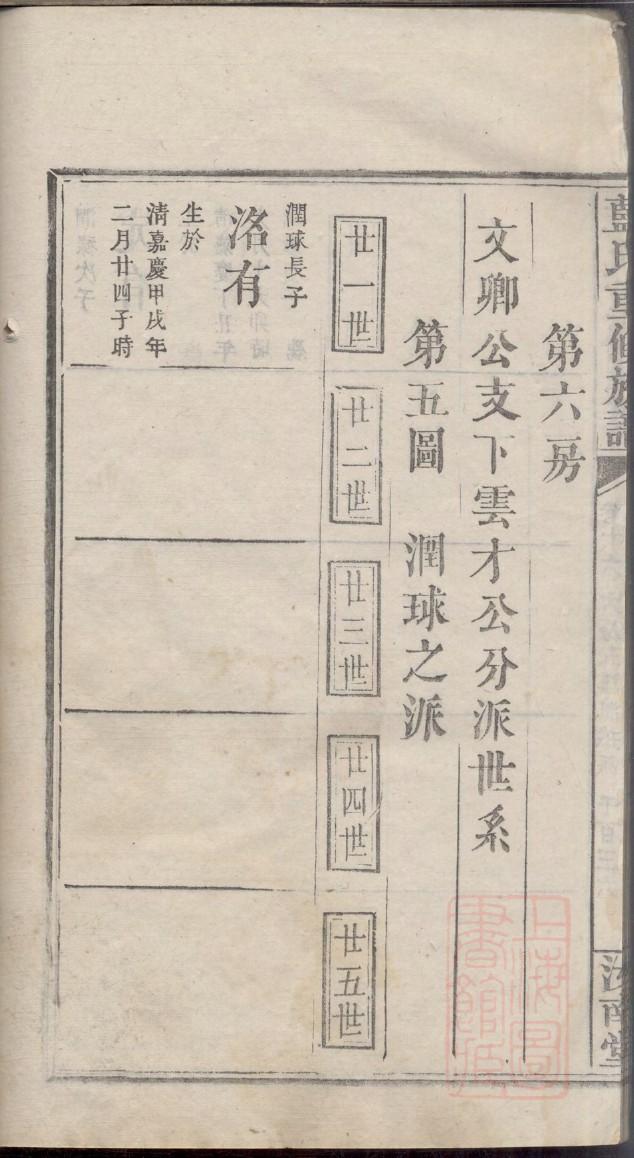 藍氏重修族譜
汝南堂
第六房
文卿公支下雲才公分派世系
第五圖　潤球之派
廿一世
廿二世
廿三世
廿四世
廿五世
潤球長子
洺有
生於
清嘉慶甲戌年
二月廿四子時
上海圖書館藏